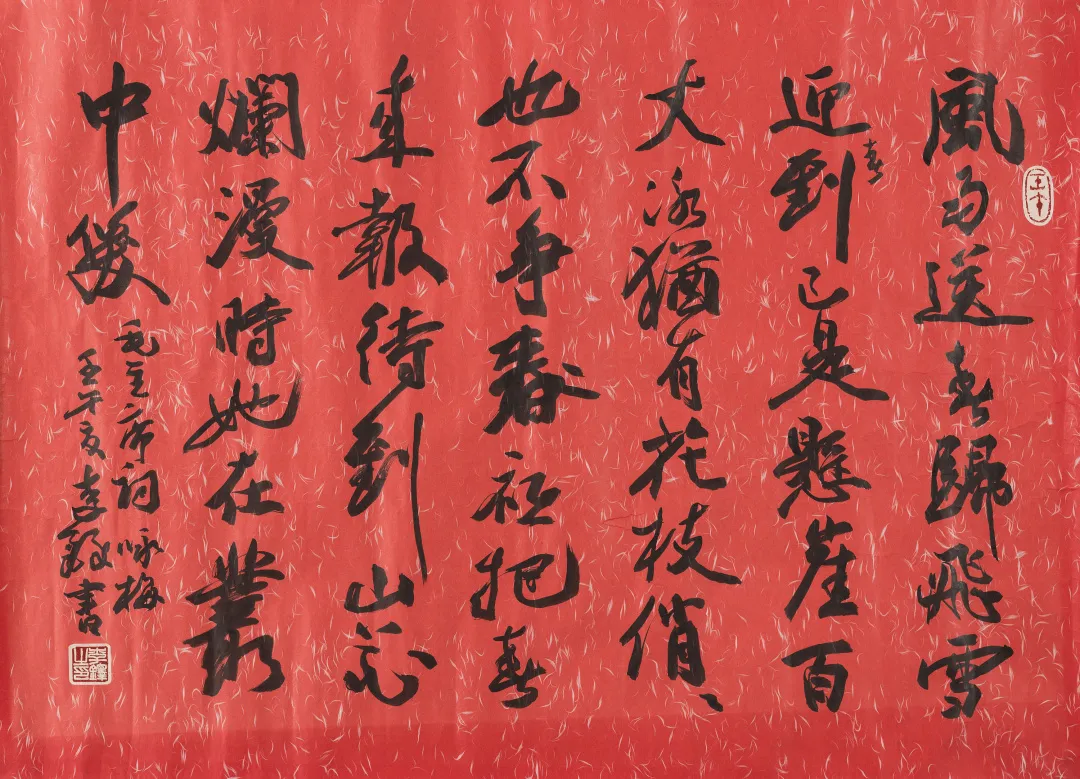 風雨送春歸飛雪
迎春到已是懸崖百
丈冰猶有花枝俏、
也不爭春祗把春
來報待到山花
爛漫時她在叢
中
毛主席詞咏梅
壬午夏書